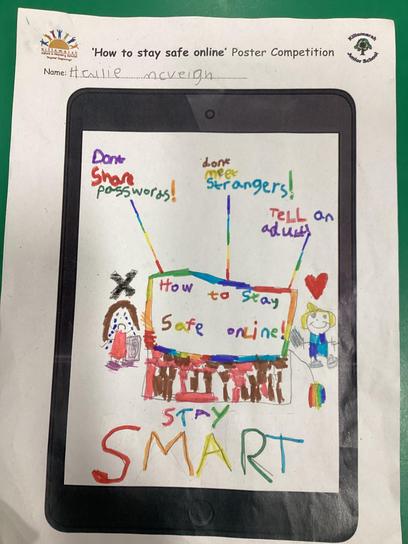 'How to stay safe online' Poster Competition
Killamarsh
Junior School
Name: Hallie mcveigh
Dont
Share
passwords!
dont
meet
Strangers!
TELL an
adult!
How to Stay
Safe online!
STAY
SMART